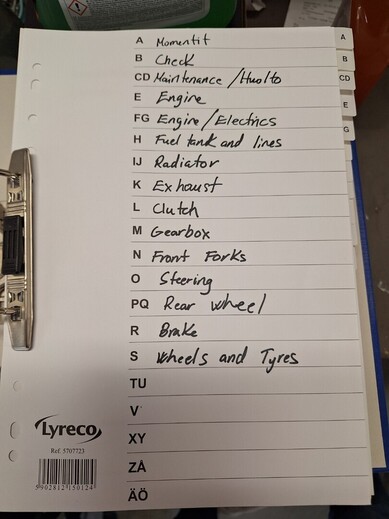 A Momentit
B Check
CD Maintenance / Huolto
E Engine
FG Engine/Electrics
H Fuel tank and lines
IJ Radiator
K Exhaust
L Clutch
M Gearbox
N Front Forks
O Steering
PQ Rear wheel
R Brake
S Wheels and Tyres
TU
V
XY
ZÅ
ÄÖ
Lyreco
Ref. 5707723
A
B
CD
E
G